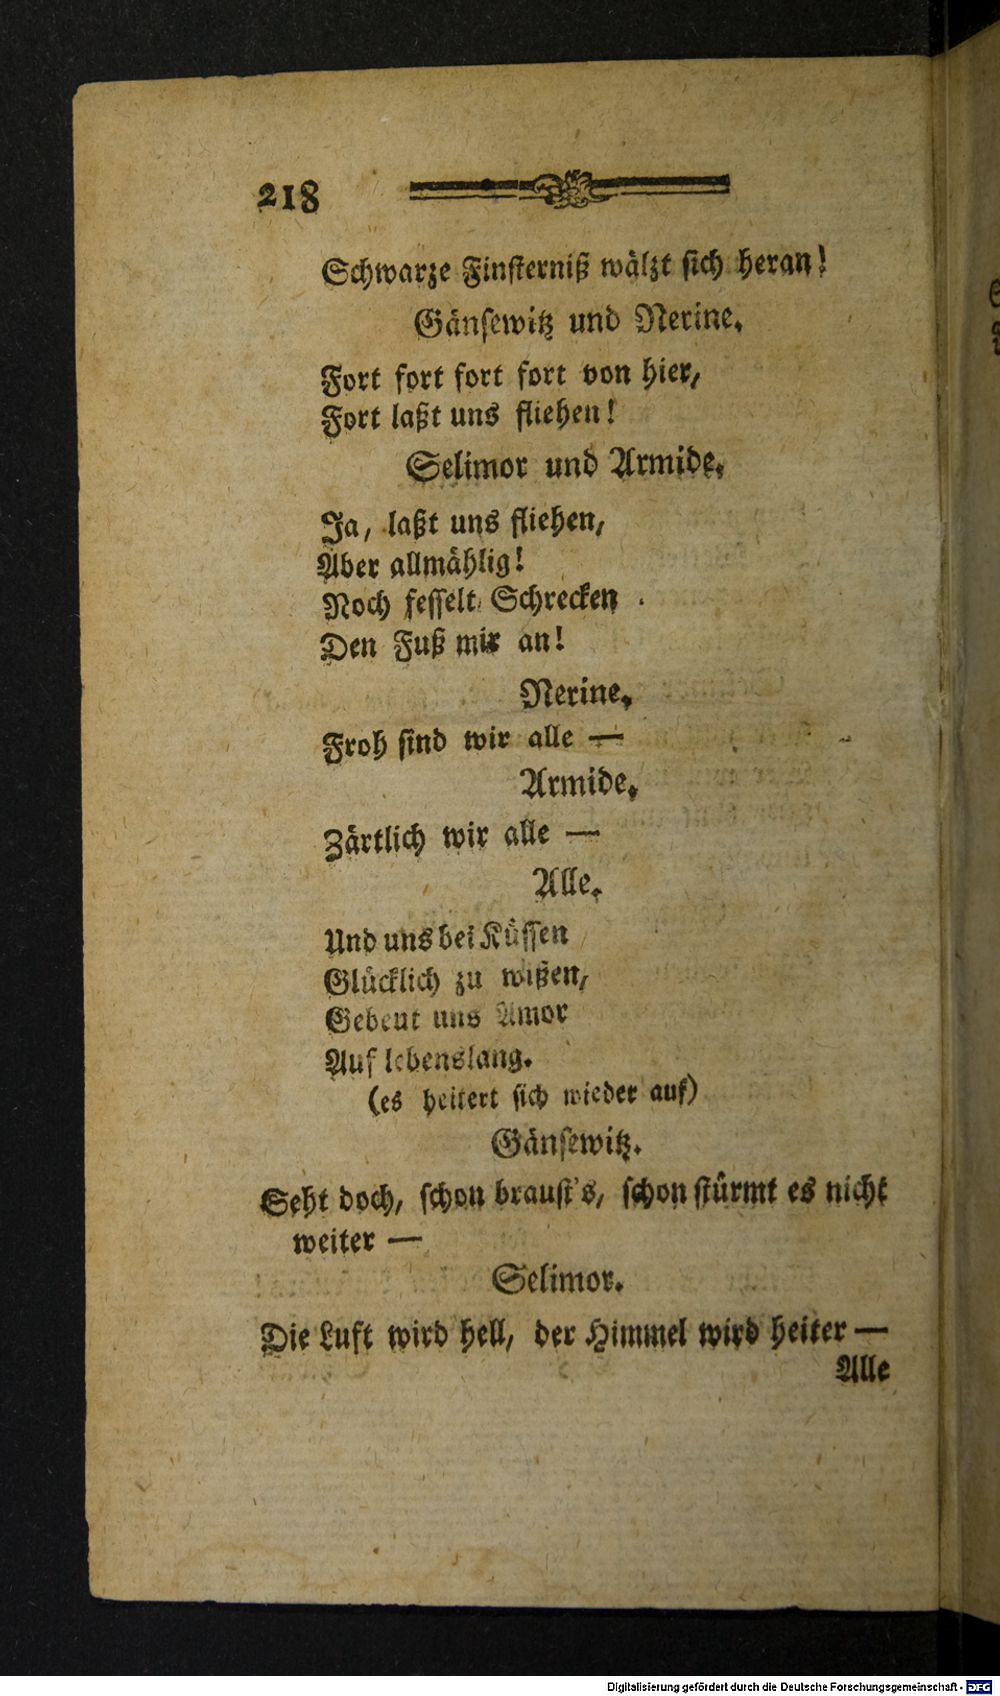 218
Schwarze Finsterniß wälzt sich heran!
Gänsewitz und Nerine.
Fort fort fort fort von hier,
Fort laßt uns fliehen!
Selimor und Armide.
Ja, laßt uns fliehen,
Aber allmählig!
Noch fesselt Schrecken
Den Fuß mir an!
Nerine.
Froh sind wir alle —
Armide.
Zärtlich wir alle —
Alle.
Und uns bei Küssen
Glücklich zu wißen,
Gebeut uns Amor
Auf lebenslang.
(es heitert sich wieder auf)
Gänsewitz.
Seht doch, schon braust's, schon stürmt es nicht
weiter —
Selimor.
Die Luft wird hell, der Himmel wird heiter —
Alle
Digitalisierung gefördert durch die Deutsche Forschungsgemeinschaft - DFG